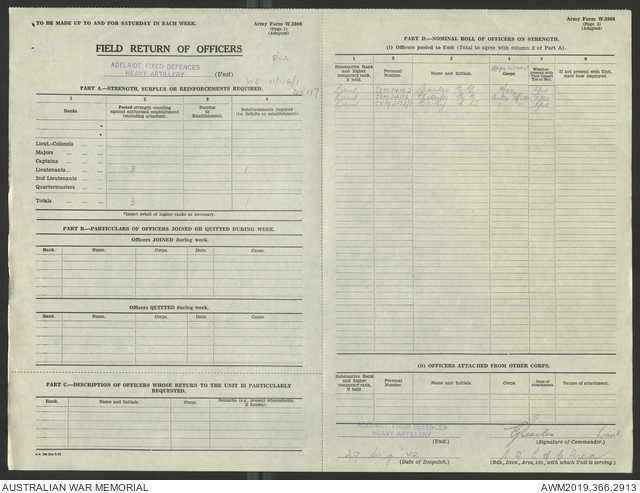 TO BE MADE UP TO AND FOR SATURDAY IN EACH WEEK.
Army Form W.3008
(Page 1)
(Adapted)
FIELD RETURN OF OFFICERS
ADELAIDE FIXED DEFENCES
HEAVY ARTILLERY
(Unit)
PART A.—STRENGTH, SURPLUS OR REINFORCEMENTS REQUIRED.
1 2 3 4
Ranks.
Posted strength counting against authorized establishment (excluding attached).
Surplus to Establishment.
Reinforcements required (i.e. deficits on establishment).
Lieut.-Colonels
Majors
Captains
Lieutenants 3 1
2nd Lieutenants
Quartermasters
Totals 3 1
*Insert detail of higher ranks as necessary.
PART B.—PARTICULARS OF OFFICERS JOINED OR QUITTED DURING WEEK.
Officers JOINED during week.
Rank. Name. Corps. Date. Cause.
Officers QUITTED during week.
Rank. Name. Corps. Date. Cause.
PART C.—DESCRIPTION OF OFFICERS WHOSE RETURN TO THE UNIT IS PARTICULARLY REQUESTED.
Rank. Name and Initials. Corps. Remarks (e.g., present whereabouts, if known).
Army Form W.3008
(Page 2)
(Adapted)
PART D.—NOMINAL ROLL OF OFFICERS ON STRENGTH.
(i) Officers posted to Unit (Total to agree with column 2 of Part A).
1 2 3 4 5 6
Substantive Rank and higher temporary rank, if held.
Personal Number.
Name and Initials.
Appointment
Corps.
Whether present with Unit (Insert Yes or No).
If not present with Unit, state how employed.
Lieut
Lieut
Lieut
(ii) OFFICERS ATTACHED FROM OTHER CORPS.
Substantive Rank and higher temporary rank, if held.
Personal Number.
Name and Initials.
Corps.
Date of attachment.
Nature of attachment.
ADELAIDE FIXED DEFENCES
HEAVY ARTILLERY
(Unit.)
Lieut.
(Signature of Commander.)
29 Aug '42
(Date of Despatch.)
S A L of C Area
(Bde., Divn., Area, etc., with which Unit is serving.)
AUSTRALIAN WAR MEMORIAL
AWM2019.366.2913